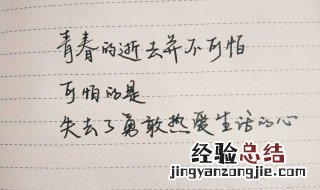 青春的逝去并不可怕
可怕的是
失去了勇敢热爱生活的心
经验总结
www.jingyanzongjie.com